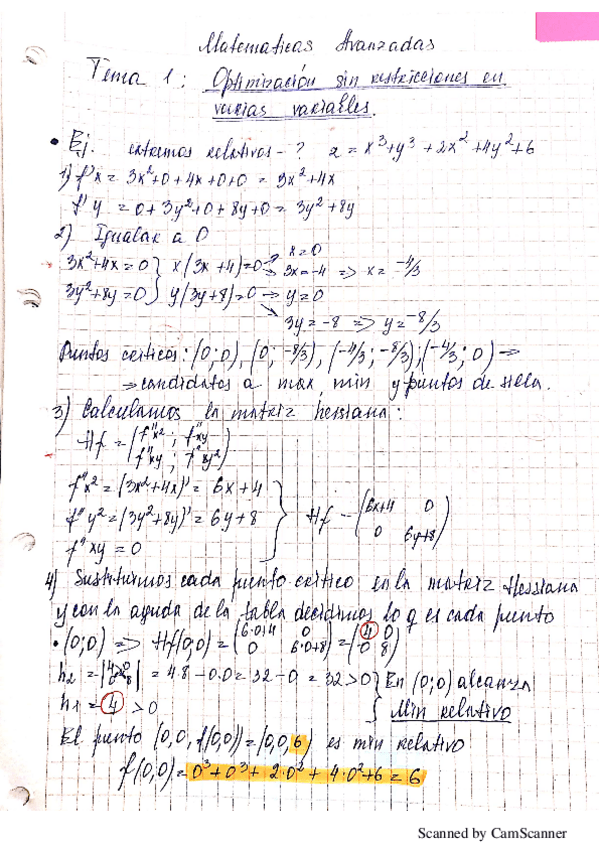 Matematicas Avanzadas
Tema 1: Optimización sin restricciones en
varias variables.
• Ej. extremos relativos - ? z = x³+y³+2x²+4y²+6
1) f'x = 3x²+0+4x+0+0 = 3x²+4x
f'y = 0+3y²+0+8y+0 = 3y²+8y
2) Igualar a 0
3x²+4x=0 } x(3x+4)=0 → x=0
→ 3x=-4 => x=-4/3
3y²+8y=0 } y(3y+8)=0 → y=0
→ 3y=-8 => y=-8/3
Puntos criticos: (0;0), (0;-8/3), (-4/3;-8/3), (-4/3;0) =>
=> candidatos a max, min y puntos de silla.
3) Calculamos la matriz hessiana:
Hf = (f''x² ; f''xy
f''xy ; f''y²)
f''x² = (3x²+4x)' = 6x+4
f''y² = (3y²+8y)' = 6y+8 } Hf = (6x+4 0
0 6y+8)
f''xy = 0
4) Sustituimos cada punto critico en la matriz Hessiana
y con la ayuda de la tabla decidimos lo q es cada punto
• (0;0) => Hf(0;0) = (6·0+4 0 = (4 0
0 6·0+8) 0 8)
h2 = |4 0
0 8| = 4·8 - 0·0 = 32-0 = 32>0 } En (0;0) alcanza
h1 = 4 > 0 Min relativo
El punto (0,0, f(0,0)) = (0,0,6) es min relativo
f(0,0) = 0³+0³+2·0²+4·0²+6 = 6
Scanned by CamScanner